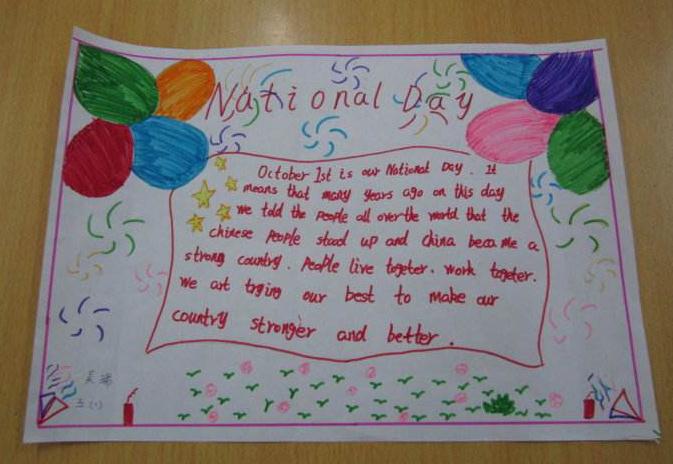 National Day
October 1st is our National Day. It
means that many years ago on this day
we told the people all over the world that the
chinese people stood up and china became a
strong country. People live togeter. work togeter.
We art trying our best to make our
country stronger and better.
吴
五(1)